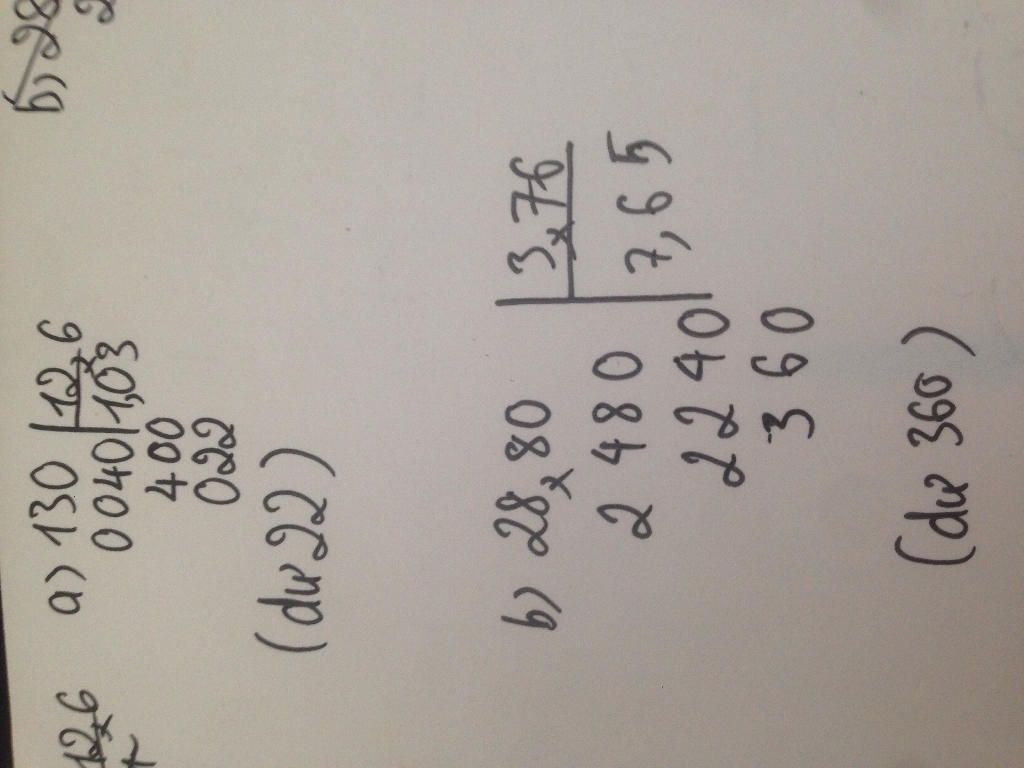 12,6 a) 130 12,6 b) 28
0040 1,03
400
022
(dư 22)
b) 28,80 3,76
2 480 7,65
2240
360
(dư 360)